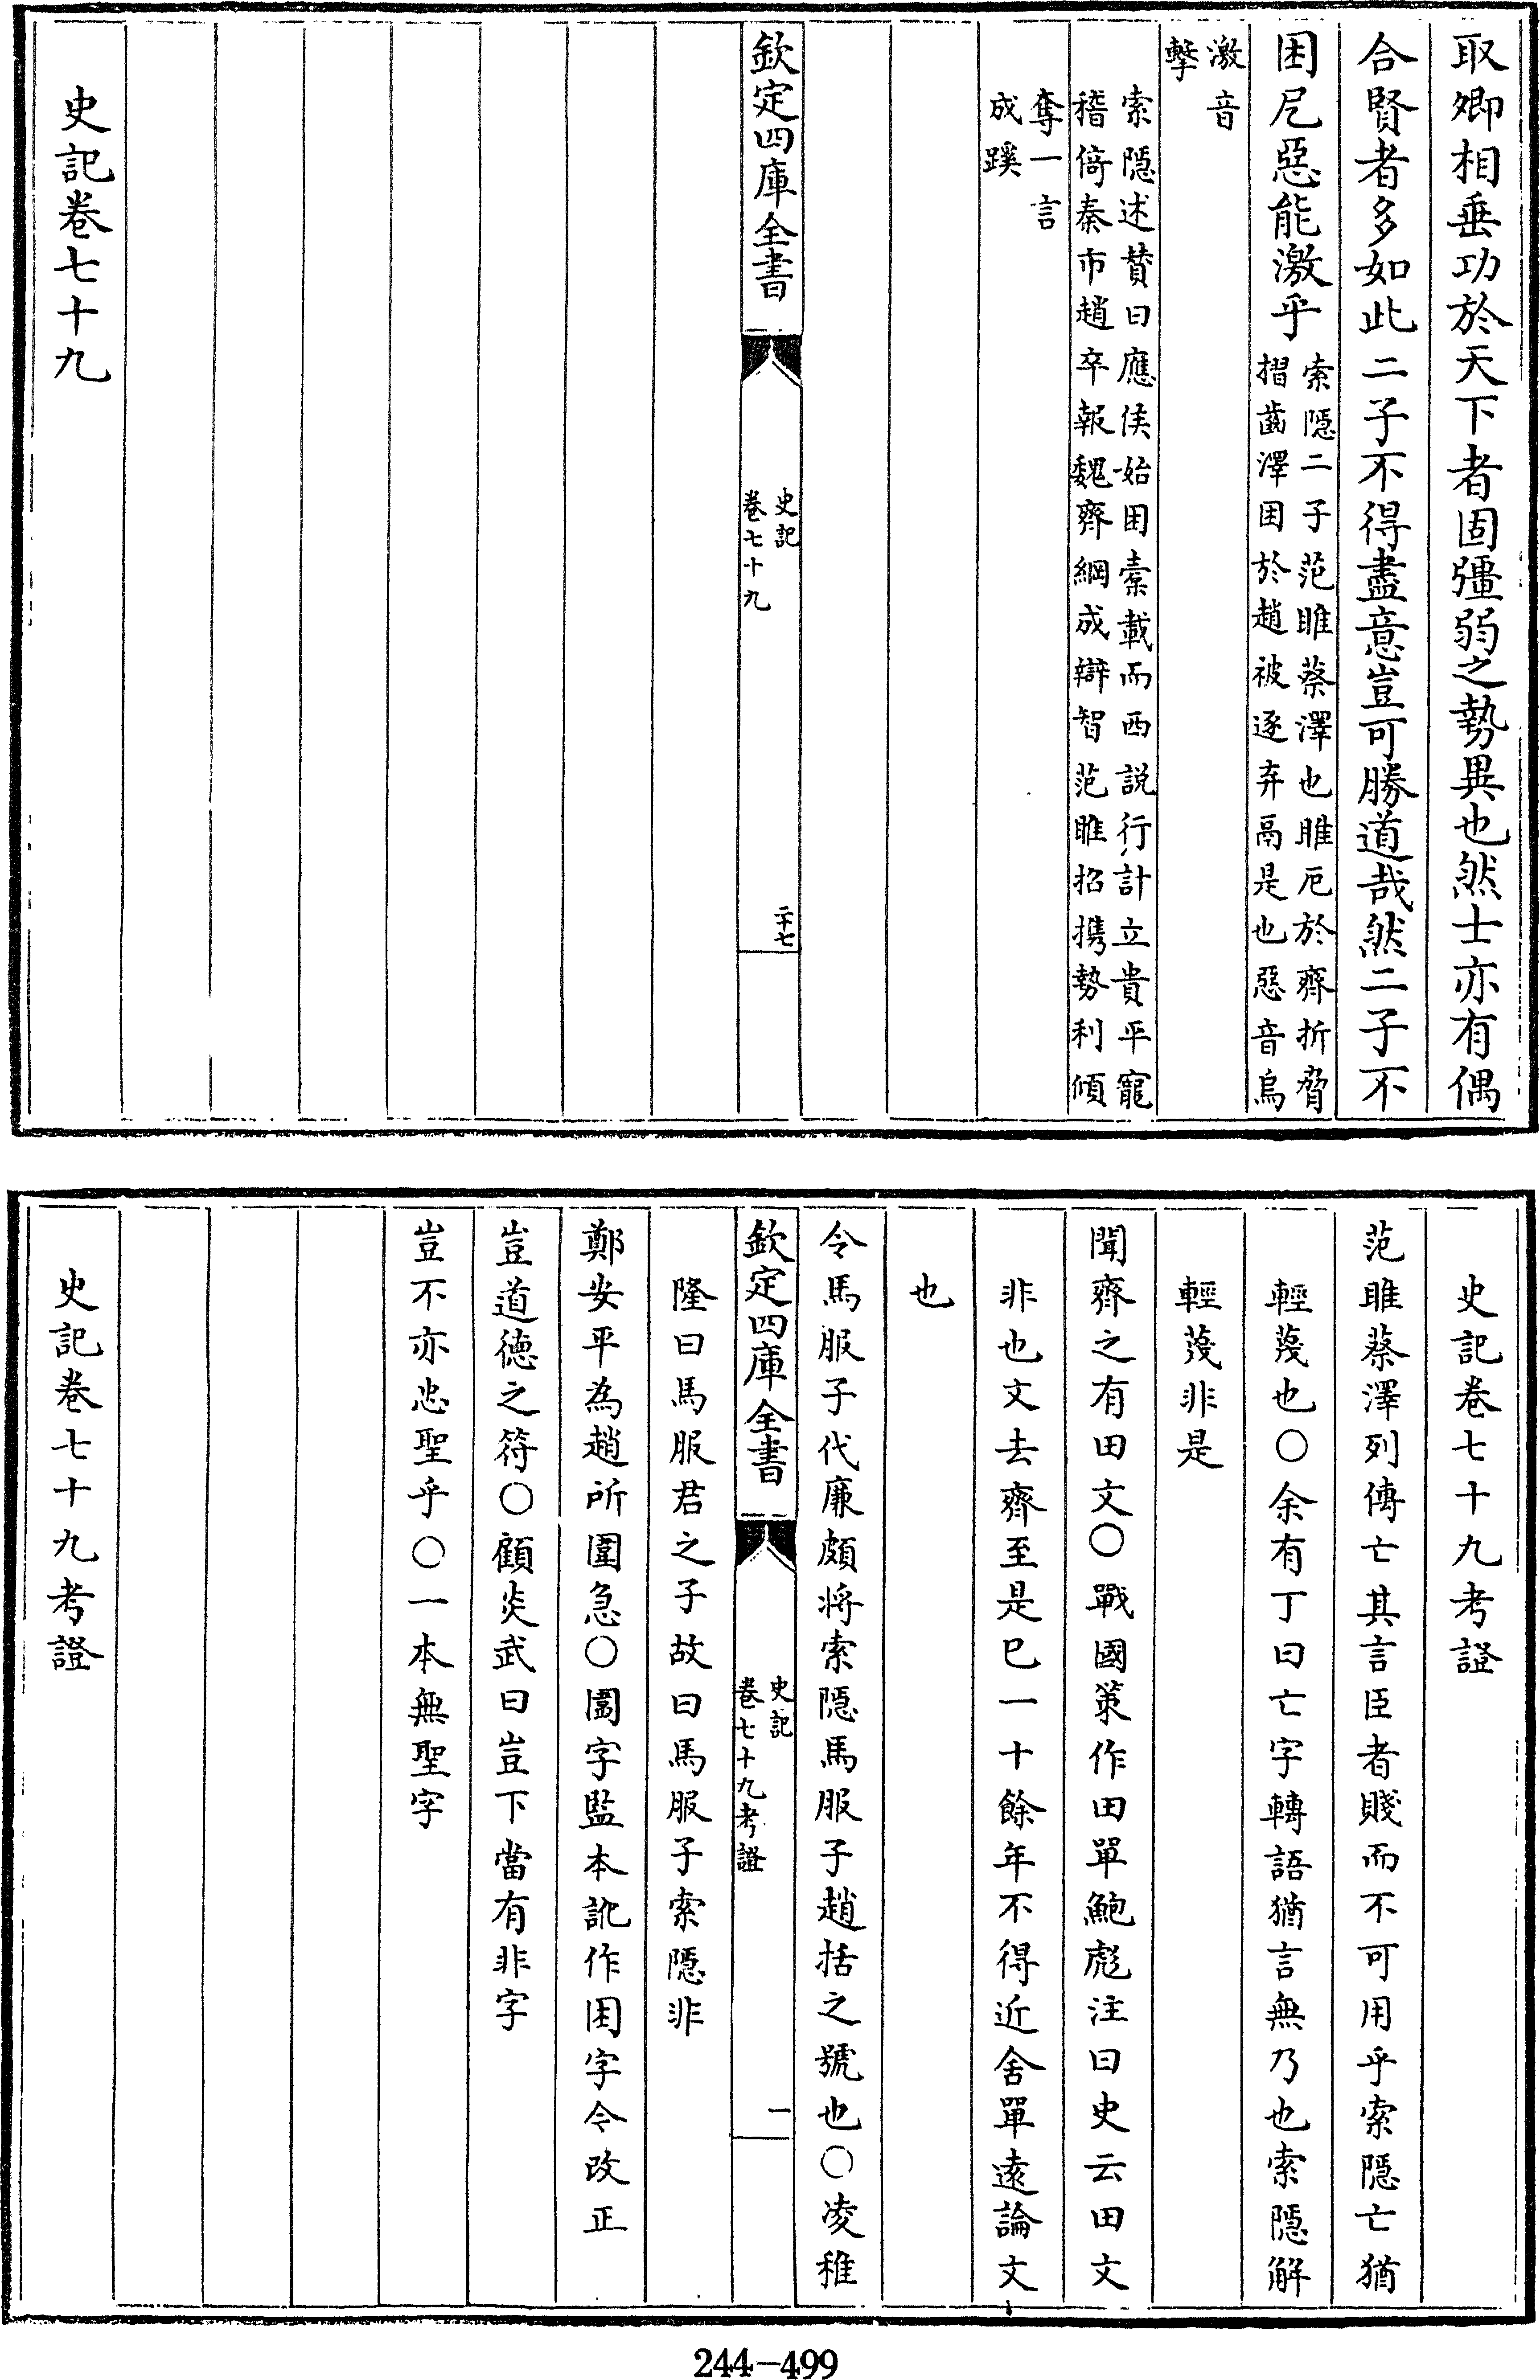 取卿相垂功於天下者固彊弱之勢異也然士亦有偶
合賢者多如此二子不得盡意豈可勝道哉然二子不
困戹惡能激乎
索隱二子范雎蔡澤也雎厄於齊折脅
摺齒澤困於趙被逐弃鬲是也惡音烏
激音
擊
索隱述賛曰應侯始困橐載而西説行計立貴平寵
稽倚秦市趙卒報魏齊綱成辯智范雎招携勢利傾
奪一言
成蹊
欽定四庫全書
史記
卷七十九
二十七
史記卷七十九
史記卷七十九考證
范雎蔡澤列傳亡其言臣者賤而不可用乎索隱亡猶
輕蔑也〇余有丁曰亡字轉語猶言無乃也索隱解
輕蔑非是
聞齊之有田文〇戰國策作田單鮑彪注曰史云田文
非也文去齊至是已一十餘年不得近舍單遠論文
也
令馬服子代廉頗将索隱馬服子趙括之號也〇凌稚
欽定四庫全書
史記
卷七十九考證
一
隆曰馬服君之子故曰馬服子索隱非
鄭安平為趙所圍急〇圍字監本訛作困字今改正
豈道德之符〇顧炎武曰豈下當有非字
豈不亦忠聖乎〇一本無聖字
史記卷七十九考證
244-499